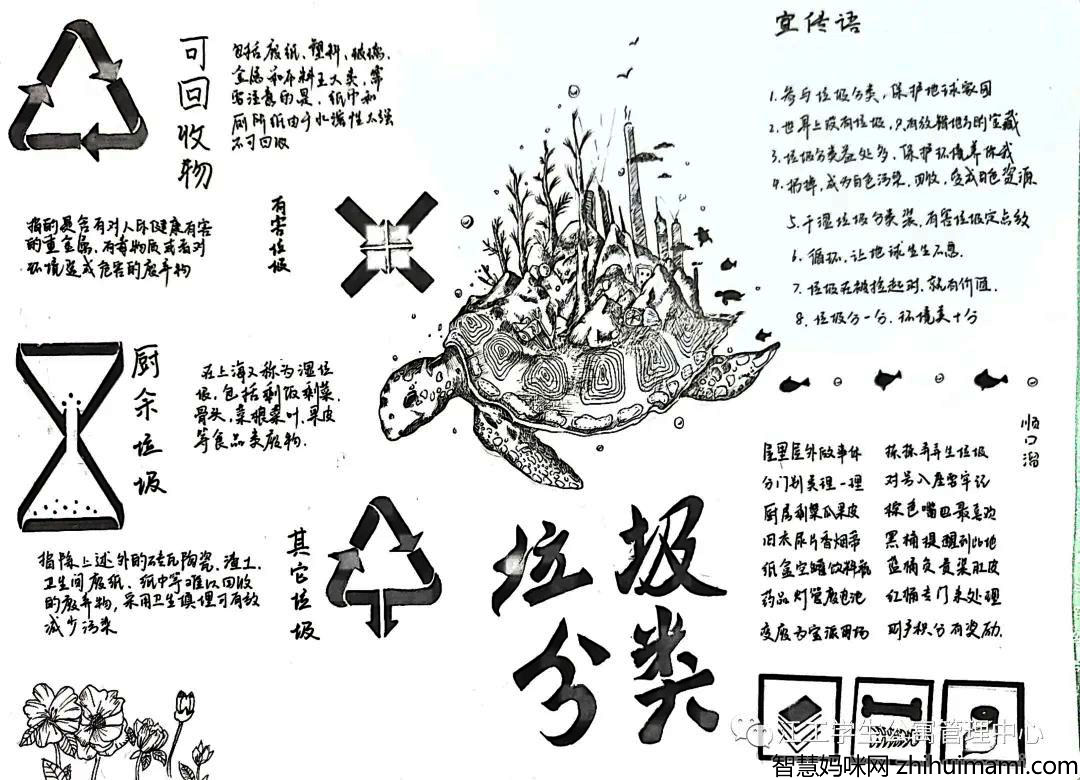 可回收物
包括废纸、塑料、玻璃、
金属和布料五大类，需
要注意的是，纸巾和
厕所纸由于水溶性太强
不可回收
有害垃圾
指的是含有对人体健康有害
的重金属、有毒物质或者对
环境造成危害的废弃物
厨余垃圾
在上海又称为湿垃
圾，包括剩饭剩菜、
骨头、菜根菜叶、果皮
等食品类废物.
其它垃圾
指除上述外的砖瓦陶瓷、渣土、
卫生间废纸、纸巾等难以回收
的废弃物，采用卫生填埋可有效
减少污染
垃圾
分类
宣传语
1.参与垃圾分类，保护地球家园
2.世界上没有垃圾，只有放错地方的宝藏
3.垃圾分类益处多，保护环境靠你我
4.扔掉，成为白色污染，回收，变成白色资源
5.干湿垃圾分类装，有害垃圾定点放
6.循环，让地球生生不息.
7.垃圾在被捡起时，就有价值.
8.垃圾分一分，环境美十分
顺口溜
屋里屋外做事体 拣拣弄弄生垃圾
分门别类理一理 对号入座需牢记
厨房剩菜瓜果皮 棕色嘴巴最喜欢
旧衣尿片香烟蒂 黑桶提醒到此地
纸盒空罐饮料瓶 蓝桶负责装肚皮
药品灯管废电池 红桶专门来处理
变废为宝派用场 财多积分有奖励.
江工学生公寓管理中心
智慧妈咪网-zhihuimami.com